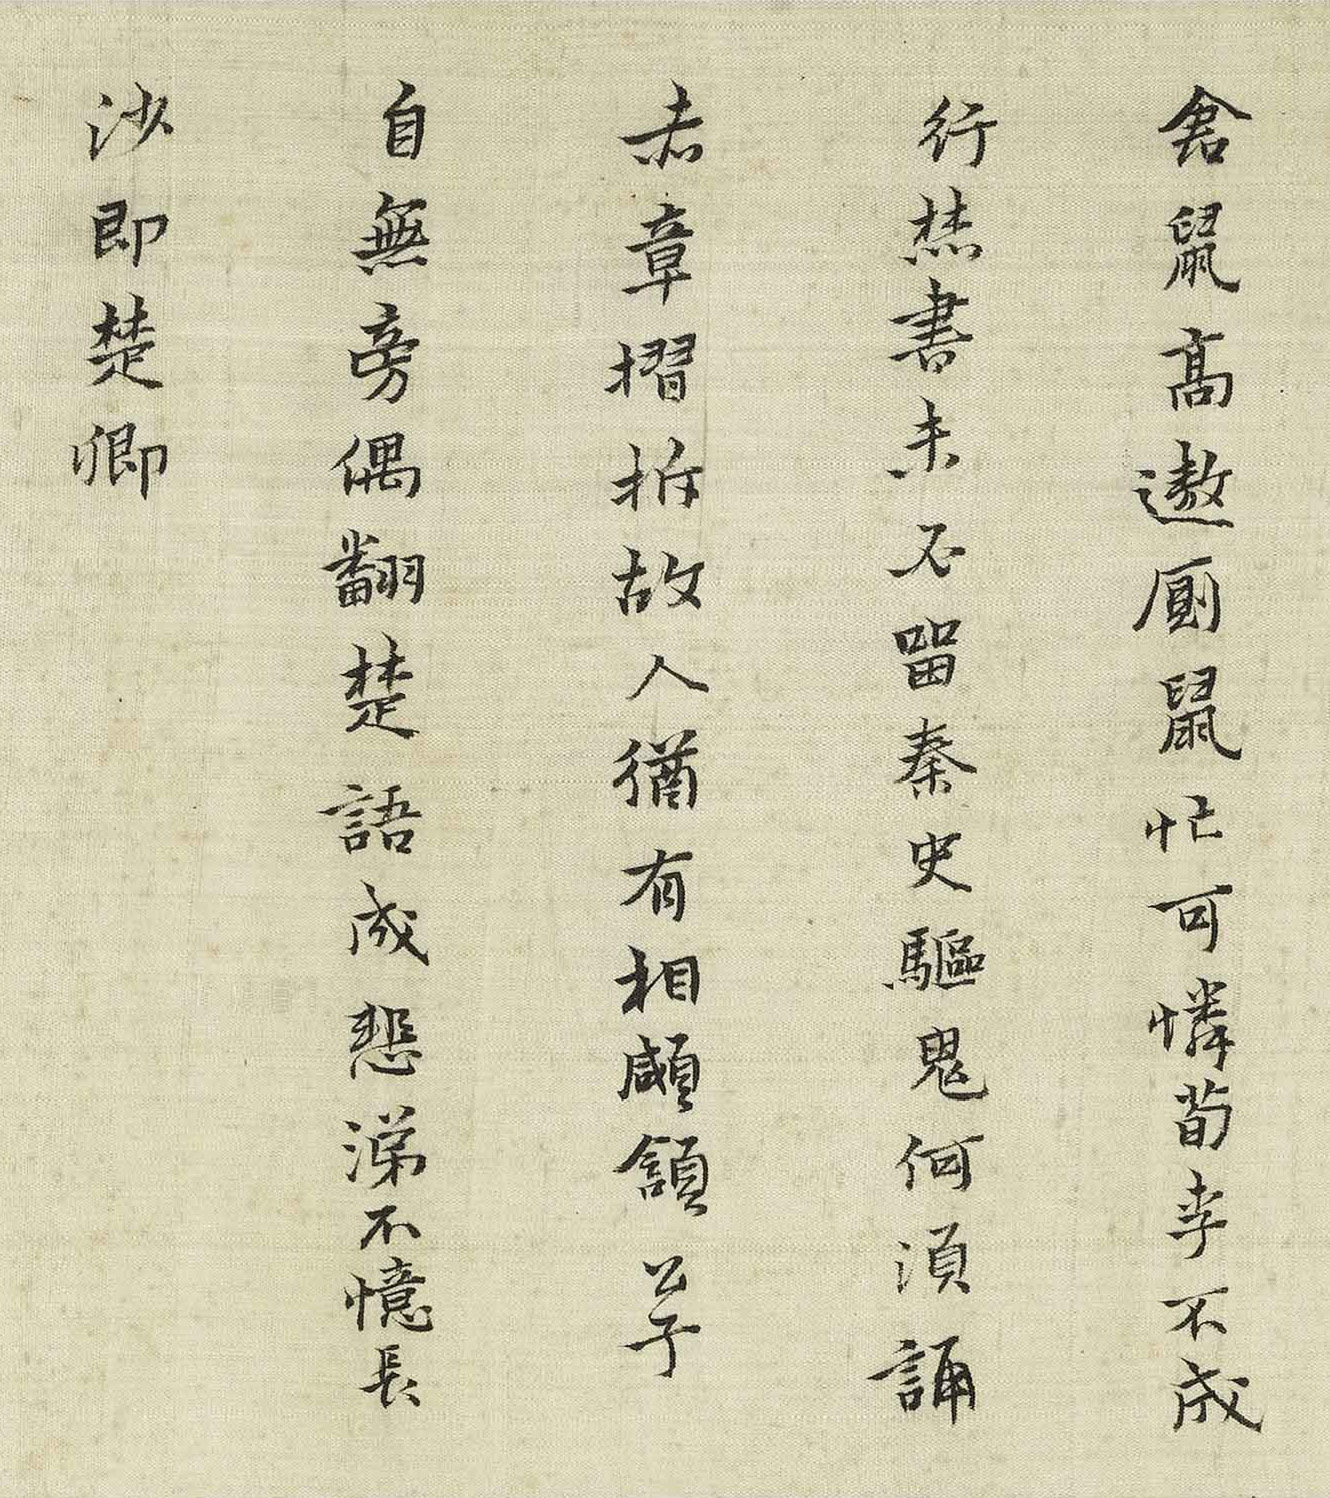 倉鼠高遨厠鼠忙可憐荀李不成
行焚書未必留秦史驅鬼何須誦
赤章摺拆故人猶有相顑頷公子
自無旁偶翻楚語成悲涕不憶長
沙即楚卿